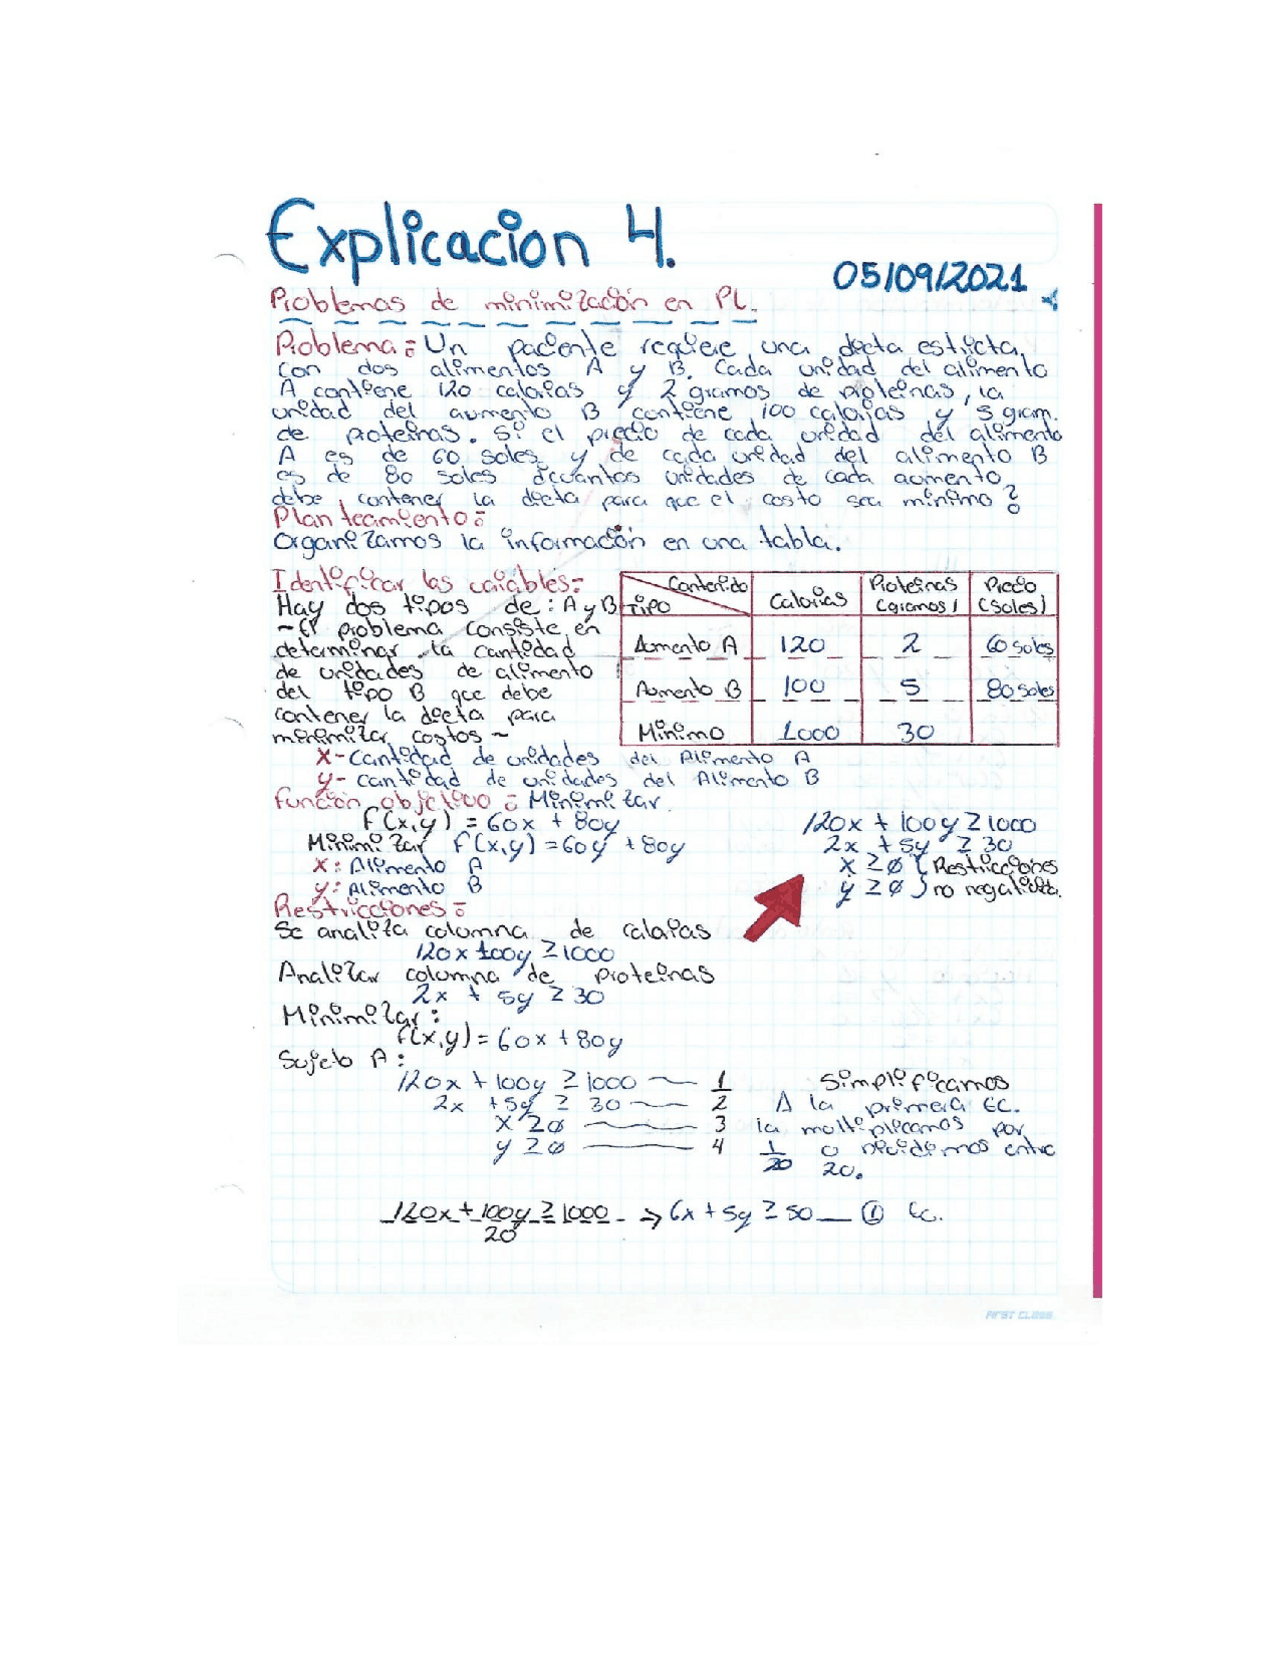 Explicacion 4.
05/09/2021
Problemas de minimización en PL.
Problema: Un paciente requiere una dieta estricta
con dos alimentos A y B. Cada unidad del alimento
A contiene 120 calorias y 2 gramos de proteinas, la
unidad del aumento B contiene 100 calorias y 5 gram.
de proteinas. Si el precio de cada unidad del alimento
A es de 60 soles y de cada unidad del alimento B
es de 80 soles ¿cuantos unidades de cada aumento
debe contener la dieta para que el costo sea minimo?
Planteamiento:
Organizamos la información en una tabla.
Identificar las variables:
Hay dos tipos de: A y B
~El problema consiste en
determinar la cantidad
de unidades de alimento
del tipo B que debe
contener la dieta para
minimizar costos ~
Contenido
TIPO Calorias Proteinas (gramos) Precio (soles)
Aumento A 120 2 60 soles
Aumento B 100 5 80 soles
Minimo 1000 30
x- Cantidad de unidades del Alimento A
y- cantidad de unidades del Alimento B
Función objetivo: Minimizar.
f(x,y) = 60x + 80y
Minimizar f(x,y) = 60y + 80y
x: Alimento A
y: Alimento B
120x + 100y ≥ 1000
2x + 5y ≥ 30
x ≥ ø } Restricciones
y ≥ ø } no negativas.
Restricciones:
Se analiza columna de calorias
120x + 100y ≥ 1000
Analizar columna de proteinas
2x + 5y ≥ 30
Minimizar:
f(x,y) = 60x + 80y
Sujeto A:
120x + 100y ≥ 1000 — 1
2x + 5y ≥ 30 — 2
x ≥ ø — 3
y ≥ ø — 4
Simplificamos
A la primera EC.
la multiplicamos por
1/20 o dividimos entre
20.
120x + 100y ≥ 1000 / 20 → 6x + 5y ≥ 50 — ① Ec.
FIRST CLASS